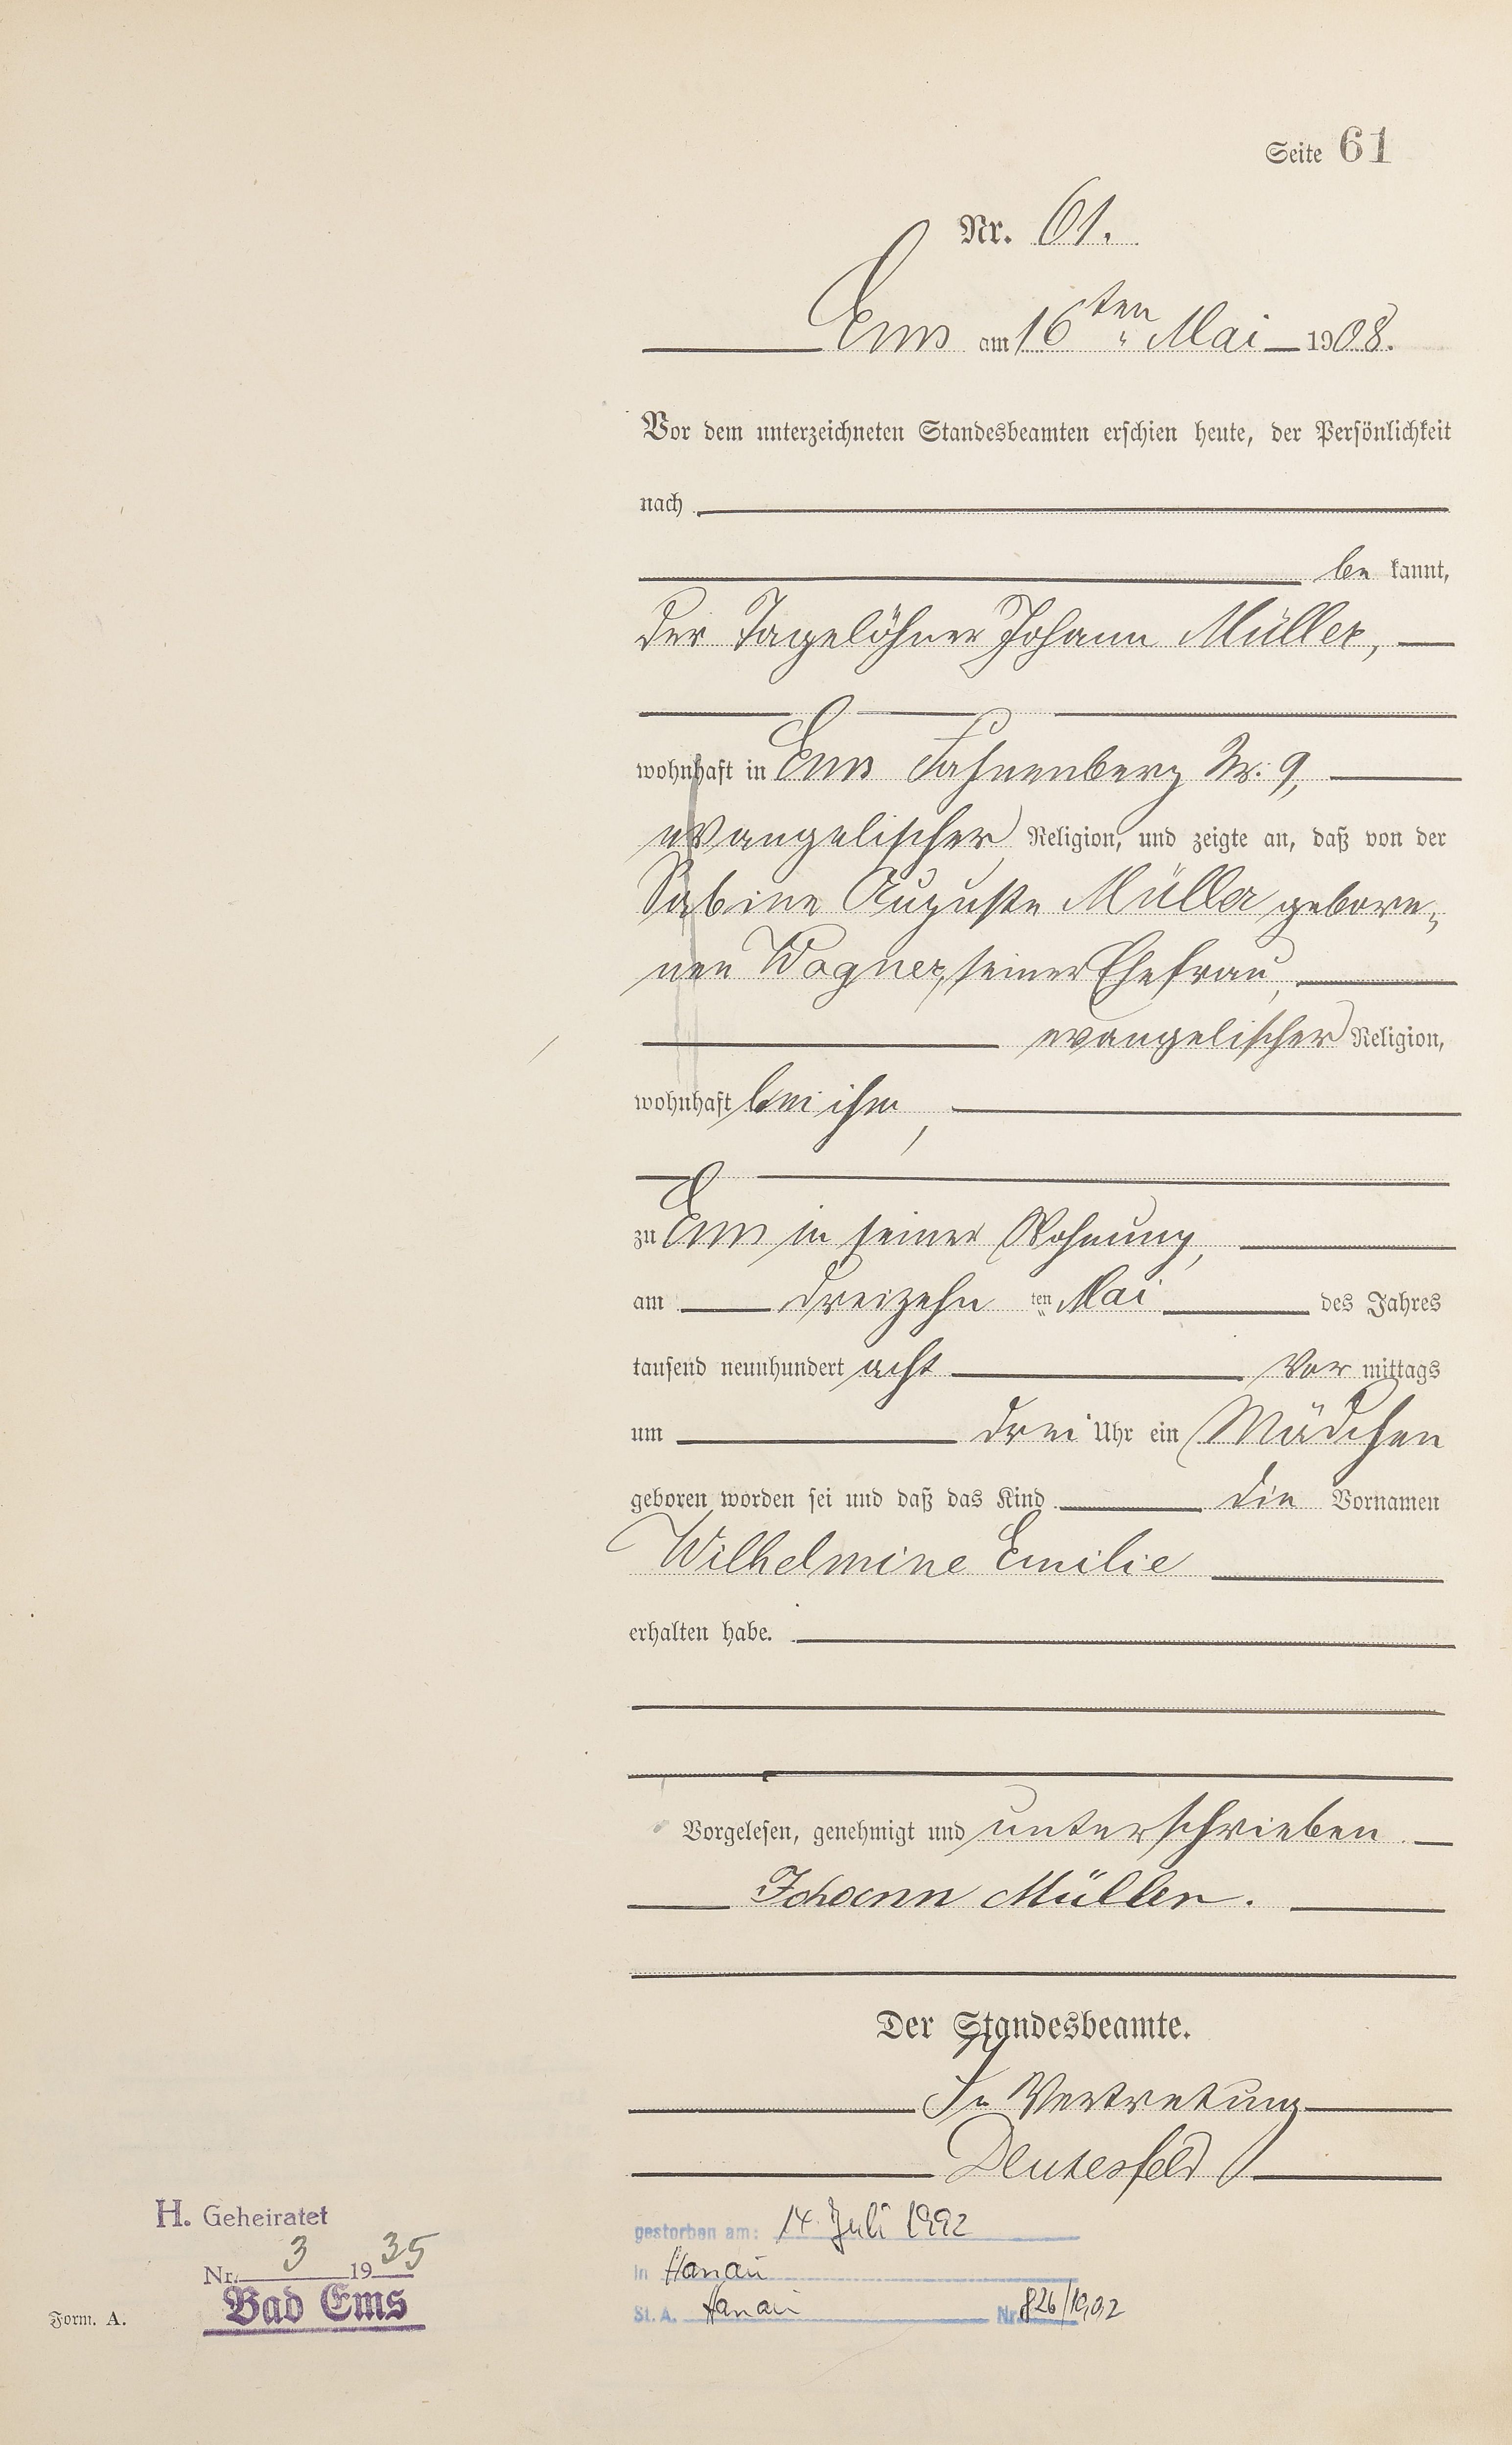 Seite 61
Nr. 61.
Ems am 16ten Mai 1908.
Vor dem unterzeichneten Standesbeamten erschien heute, der Persönlichkeit
nach
be kannt,
der Tagelöhner Johann Müller,
wohnhaft in Ems Fahnenberg Nr. 9,
evangelischer Religion, und zeigte an, daß von der
Sabine Auguste Müller gebore-
nen Wagner, seiner Ehefrau,
evangelischer Religion,
wohnhaft bei ihm,
zu Ems in seiner Wohnung,
am dreizehn ten Mai des Jahres
tausend neunhundert acht Vor mittags
um drei Uhr ein Mädchen
geboren worden sei und daß das Kind die Vornamen
Wilhelmine Emilie
erhalten habe.
Vorgelesen, genehmigt und unterschrieben
Johann Müller.
Der Standesbeamte.
In Vertretung
H. Geheiratet
Nr. 3 1935
Bad Ems
Form. A.
gestorben am: 14. Juli 1992
in Hanau
St. A. Hanau Nr. 826/1992